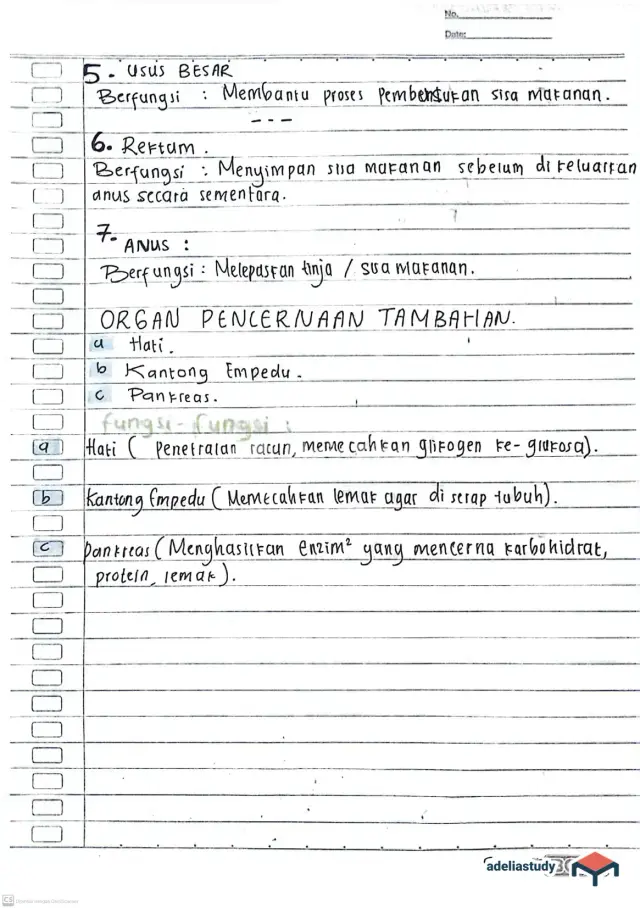 No.
Date:
5. USUS BESAR
Berfungsi : Membantu proses Pembentukan sisa makanan.
---
6. Rektum.
Berfungsi : Menyimpan sisa makanan sebelum di keluarkan
anus secara sementara.
7. ANUS :
Berfungsi : Melepaskan tinja / sisa makanan.
ORGAN PENCERNAAN TAMBAHAN.
a Hati.
b Kantong Empedu.
c Pankreas.
fungsi-fungsi :
a Hati ( Penetralan racun, memecahkan glikogen ke-glukosa).
b Kantong Empedu ( Memecahkan lemak agar di serap tubuh).
c Pankreas ( Menghasilkan enzim² yang mencerna karbohidrat,
protein, lemak).
adeliastudy
CS